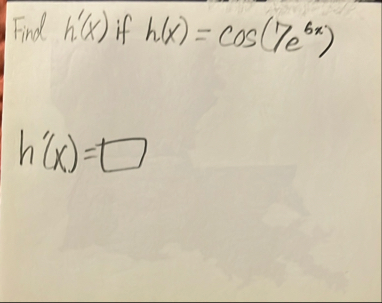 Find h'(x) if h(x) = cos(7e^{6x})
h'(x)=□